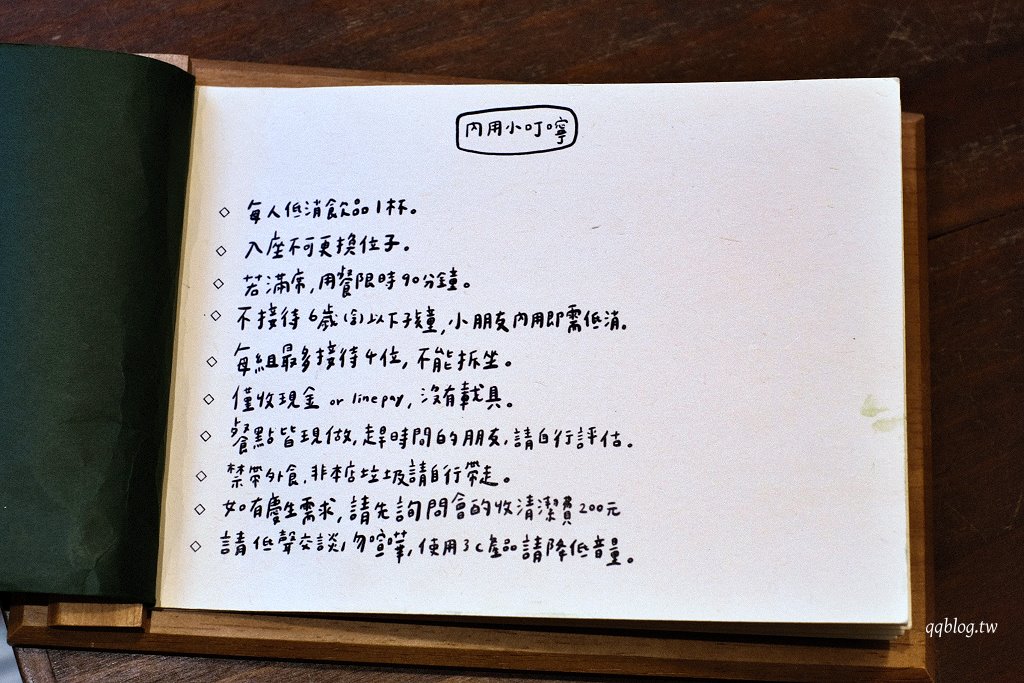 內用小叮嚀
◇ 每人低消飲品1杯。
◇ 入座不可更換位子。
◇ 若滿席,用餐限時90分鐘。
◇ 不接待6歲(含)以下孩童,小朋友內用即需低消。
◇ 每組最多接待4位,不能拆坐。
◇ 僅收現金 or linepay,沒有載具。
◇ 餐點皆現做,趕時間的朋友,請自行評估。
◇ 禁帶外食,非本店垃圾請自行帶走。
◇ 如有慶生需求,請先詢問會酌收清潔費200元
◇ 請低聲交談,勿喧嘩,使用3c產品請降低音量。
qqblog.tw